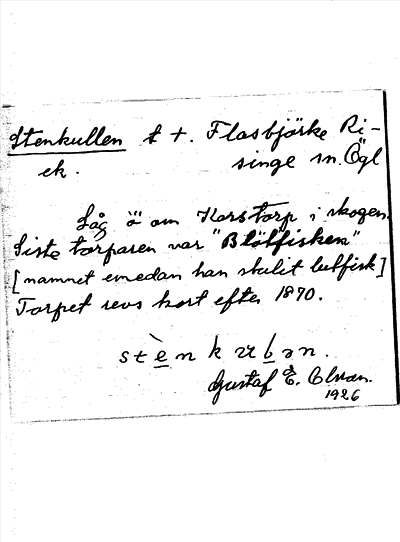 Stenkullen t †. Flasbjörke Ri-
ek. singe sn. Ögl
Låg ö om Korstorp i skogen.
Siste torparen var "Blötfisken"
[namnet emedan han stulit lutfisk]
Torpet revs kort efter 1870.
stènkulən.
Gustaf E.
1926